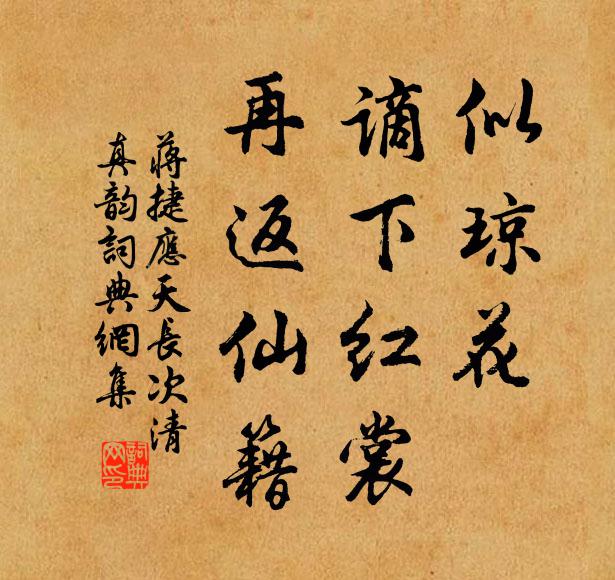 似琼花
谪下红裳
再返仙籍
蒋捷應天長次清
真韵詞典網集
詞典
网印